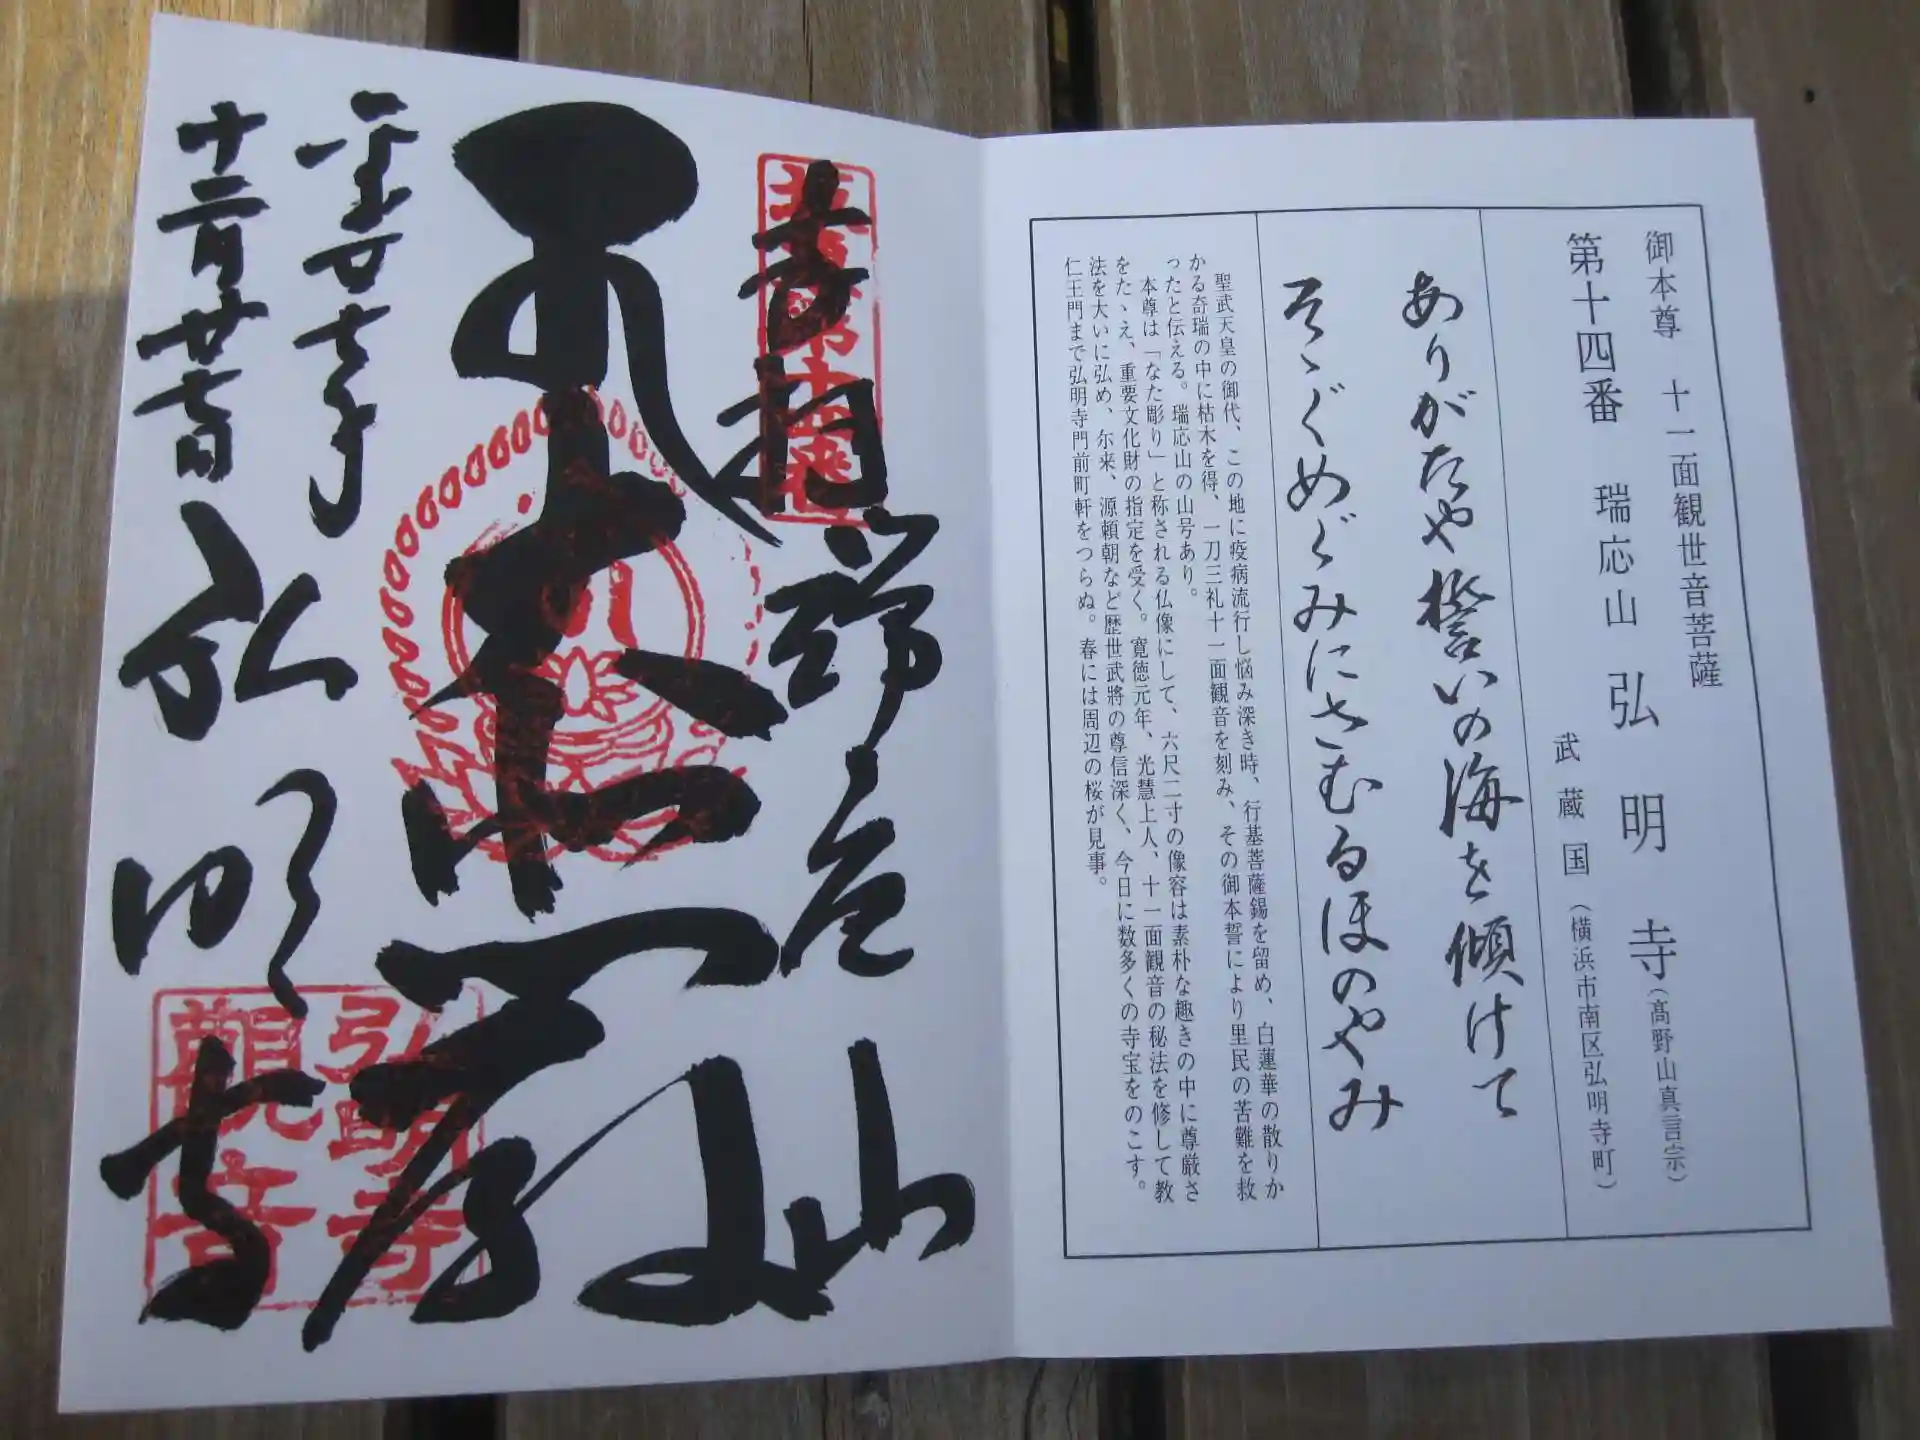 御本尊　十一面観世音菩薩
第十四番　瑞応山　弘明寺（高野山真言宗）
武蔵国（横浜市南区弘明寺町）
ありがたや誓いの海を傾けて
そゝぐめぐみにさむるほのやみ
聖武天皇の御代、この地に疫病流行し悩み深き時、行基菩薩錫を留め、白蓮華の散りか
かる奇瑞の中に枯木を得、一刀三礼十一面観音を刻み、その御本誓により里民の苦難を救
ったと伝える。瑞応山の山号あり。
本尊は「なた彫り」と称される仏像にして、六尺二寸の像容は素朴な趣きの中に尊厳さ
をたゝえ、重要文化財の指定を受く。寛徳元年、光慧上人、十一面観音の秘法を修して教
法を大いに弘め、尓来、源頼朝など歴世武将の尊信深く、今日に数多くの寺宝をのこす。
仁王門まで弘明寺門前町軒をつらぬ。春には周辺の桜が見事。
奉拝
瑞應山
平成廿七年
十二月廿七日
弘明寺
弘明寺
觀音